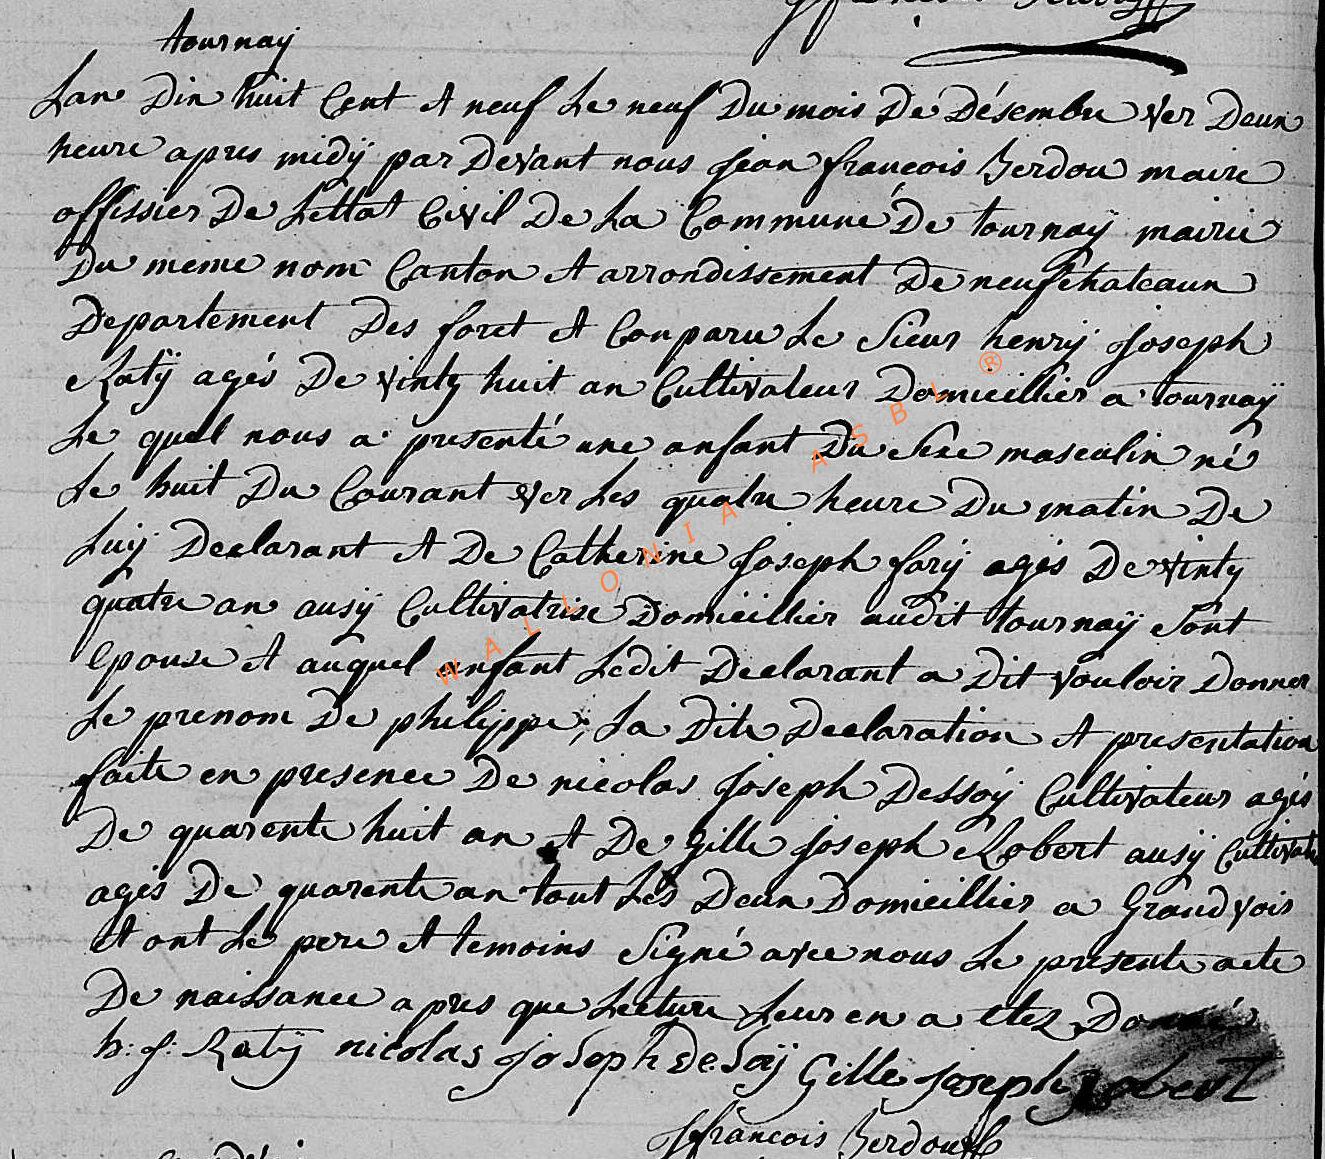 tournaÿ
Lan Dix huit Cent et neuf Le neuf Du mois De Désembre ver Deux
heure apres midÿ par Devant nous Jean françois Berdou maire
offissier De Lettat Civil De La Commune De tournaÿ mairie
Du meme nom Canton et arrondissement De neufchateaux
Departement Des foret et Conparu Le Sieur henrÿ Joseph
Ratÿ agés De vinty huit an Cultivateur Domicillier a tournaÿ
Le quel nous a presenté une anfant Du Sexe masculin né
Le huit Du Courant ver Les quatre heure Du matin De
Luÿ Declarant et De Catherine Joseph forÿ agés De vinty
quatre an ausÿ Cultivatrise Domicillier audit tournaÿ Sont
epouse et auquel enfant Ledit Declarant a Dit vouloir Donner
Le prenom De philippe; La Dite Declaration et presentation
faite en presence De nicolas Joseph Dessoÿ Cultivateur agés
De quarente huit an et De Gille Joseph Robert ausÿ Cultivate
agés De quarente an tout Les Deux Domicillier a Grandvoir
et ont Le pere et temoins Signé avec nous Le presente acte
De naissance apres que Lecture Leur en a etez Donné
h: j: Ratÿ nicolas joseph deSoÿ Gille joseph Robert
J françois Berdou
WALLONIA ASBL ®